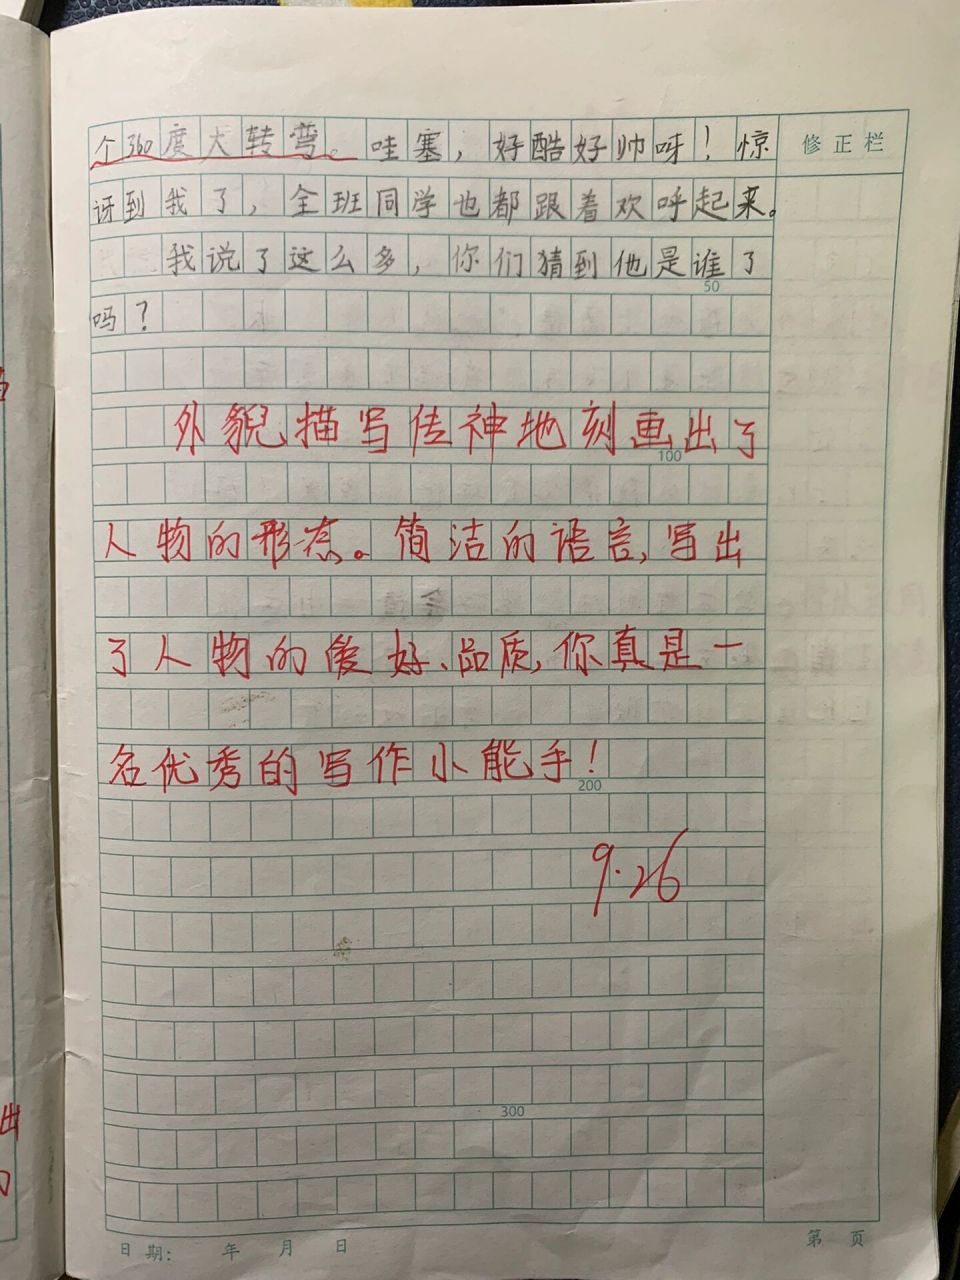 个360度大转弯。哇塞，好酷好帅呀！惊
修正栏
讶到我了，全班同学也都跟着欢呼起来。
我说了这么多，你们猜到他是谁了
50
吗？
外貌描写传神地刻画出了
100
人物的形态。简洁的语言，写出
了人物的爱好、品质，你真是一
名优秀的写作小能手！
200
9.26
300
日期： 年 月 日
第 页
出